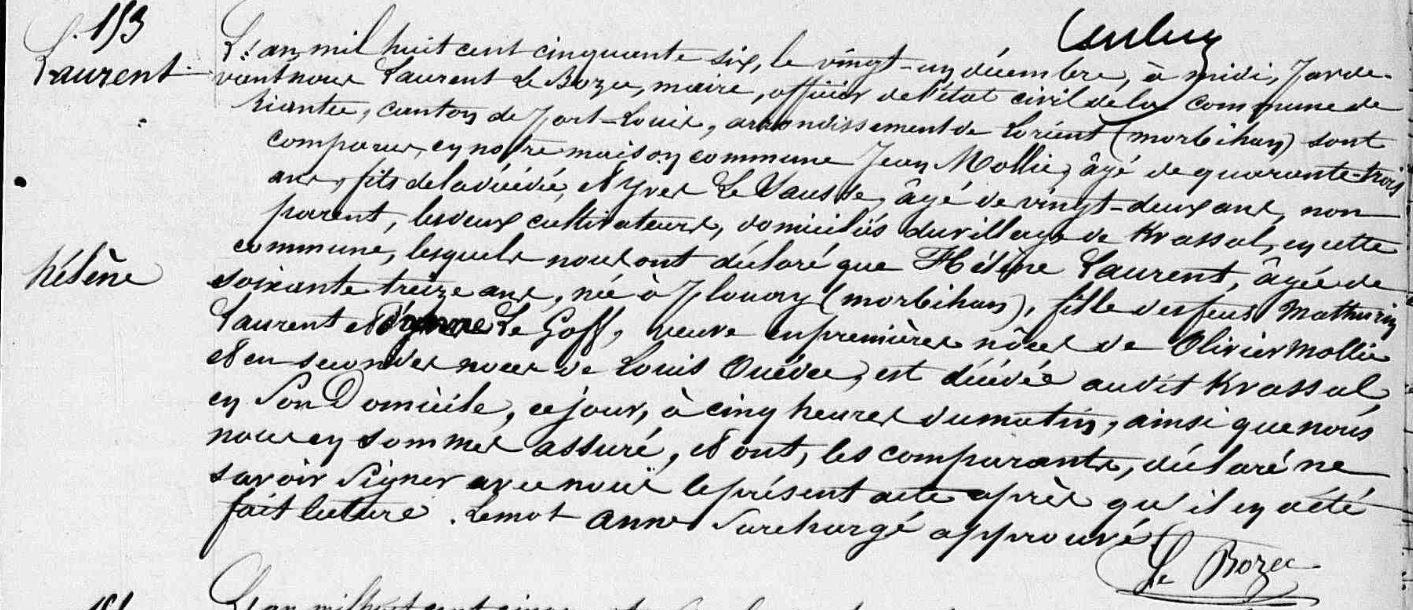 153
Laurent
Hélène
L'an mil huit cent cinquante six, le vingt-un décembre, à midi, par de-
vant nous Laurent Le Bozec, maire, officier de l'état civil de la commune de
Riantec, canton de Port-Louis, arrondissement de Lorient (morbihan) sont
comparus, en notre maison commune Jean Mollie, âgé de quarante-trois
ans, fils de la décédée, et Yves Le Sausse, âgé de vingt-deux ans, non
parent, les deux cultivateurs, domiciliés du village de Krassal, en cette
commune, lesquels nous ont déclaré que Hélène Laurent, âgée de
soixante treize ans, née à Plouay (morbihan), fille des feus Mathurin
Laurent et d'anne Le Goff, veuve en premières nôces de Olivier Mollie
et en secondes noces de Louis Quévec, est décédée au dit Krassal,
en Son Domicile, ce jour, à cinq heures du matin, ainsi que nous
nous en sommes assuré, et ont, les comparants, déclaré ne
savoir signer avec nous le présent acte après qu'il en a été
fait lecture. Le mot anne Surchargé approuvé
Le Bozec
L'an mil huit cent cinq